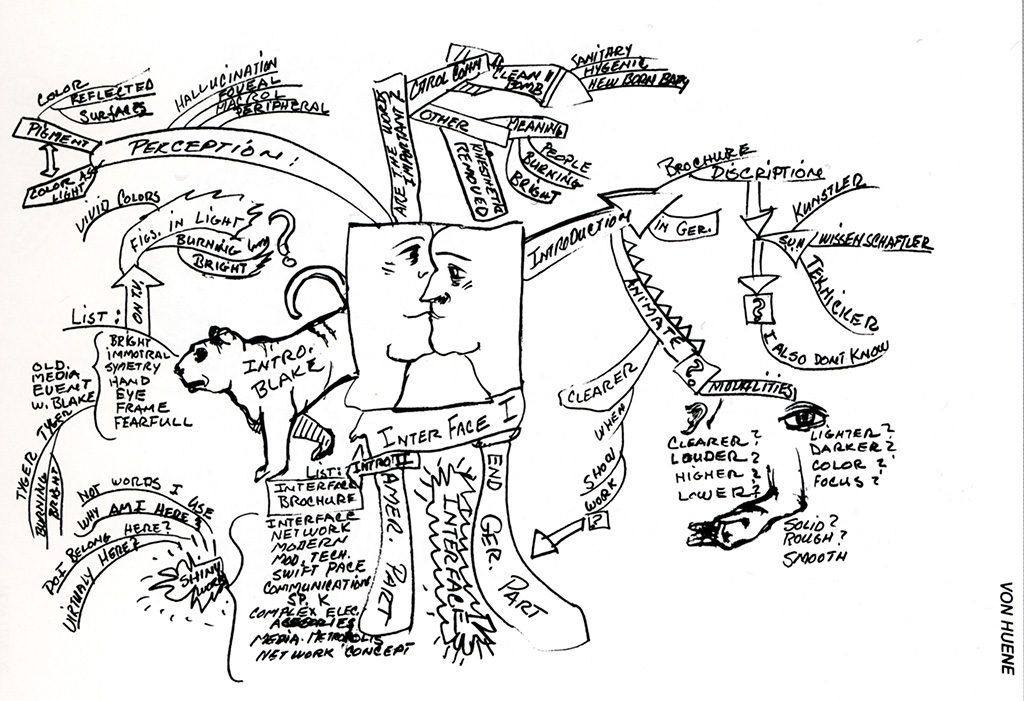 COLOR
REFLECTED
SURFACES
PIGMENT
COLOR AS
LIGHT
HALLUCINATION
FOVEAL
MACROL
PERIPHERAL
PERCEPTION:
VIVID COLORS
FIGS. IN LIGHT
BURNING
BRIGHT
?
ON T.V.
LIST:
BRIGHT
IMMOTRAL
SYMETRY
HAND
EYE
FRAME
FEARFULL
OLD.
MEDIA
EVENT
W. BLAKE
TYGER
TYGER
BURNING
BRIGHT
INTRO.
BLAKE
NOT WORDS I USE
WHY AM I HERE?
DO I BELONG HERE?
VIRTUALY HERE?
SHINY
WORD
ARE THE WORDS
IMPORTANT?
CAROL CONN
CLEAN
BOMB
SANITARY
HYGENIC
NEW BORN BABY
OTHER
MEANING
KINESTHETIC
REMOVED
PEOPLE
BURNING
BRIGHT
INTRODUCTION
BROCHURE
DISCRIPTION
IN GER.
KUNSTLER
WISSENSCHAFTLER
TEKNICILER
?
I ALSO DONT KNOW
ANIMATE
?
MODALITIES
CLEARER
WHEN
SHOW
WORK
?
CLEARER?
LOUDER?
HIGHER?
LOWER?
LIGHTER?
DARKER?
COLOR?
FOCUS?
SOLID?
ROUGH?
SMOOTH
INTERFACE I
INTRO II
LIST:
INTERFACE
BROCHURE
INTERFACE
NETWORK
MODERN
MOD. TECH.
SWIFT PACE
COMMUNICATION
SP. K
COMPLEX ELEC.
MEDIA. METROPOLIS
NETWORK CONCEPT
AMER PART
INTERFACE
END GER. PART
VON HUENE